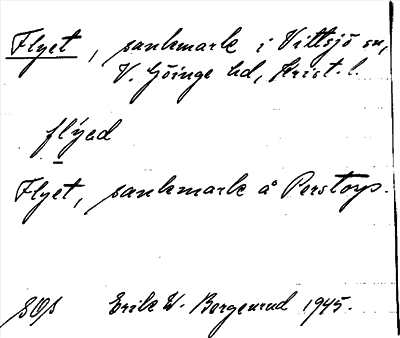 Flyet, sankmark i Vittsjö sn,
V. Göinge hd, Krist. l.
flýed
Flyet, sankmark å Perstorp.
SOS Erik W. Bergenrud 1945.